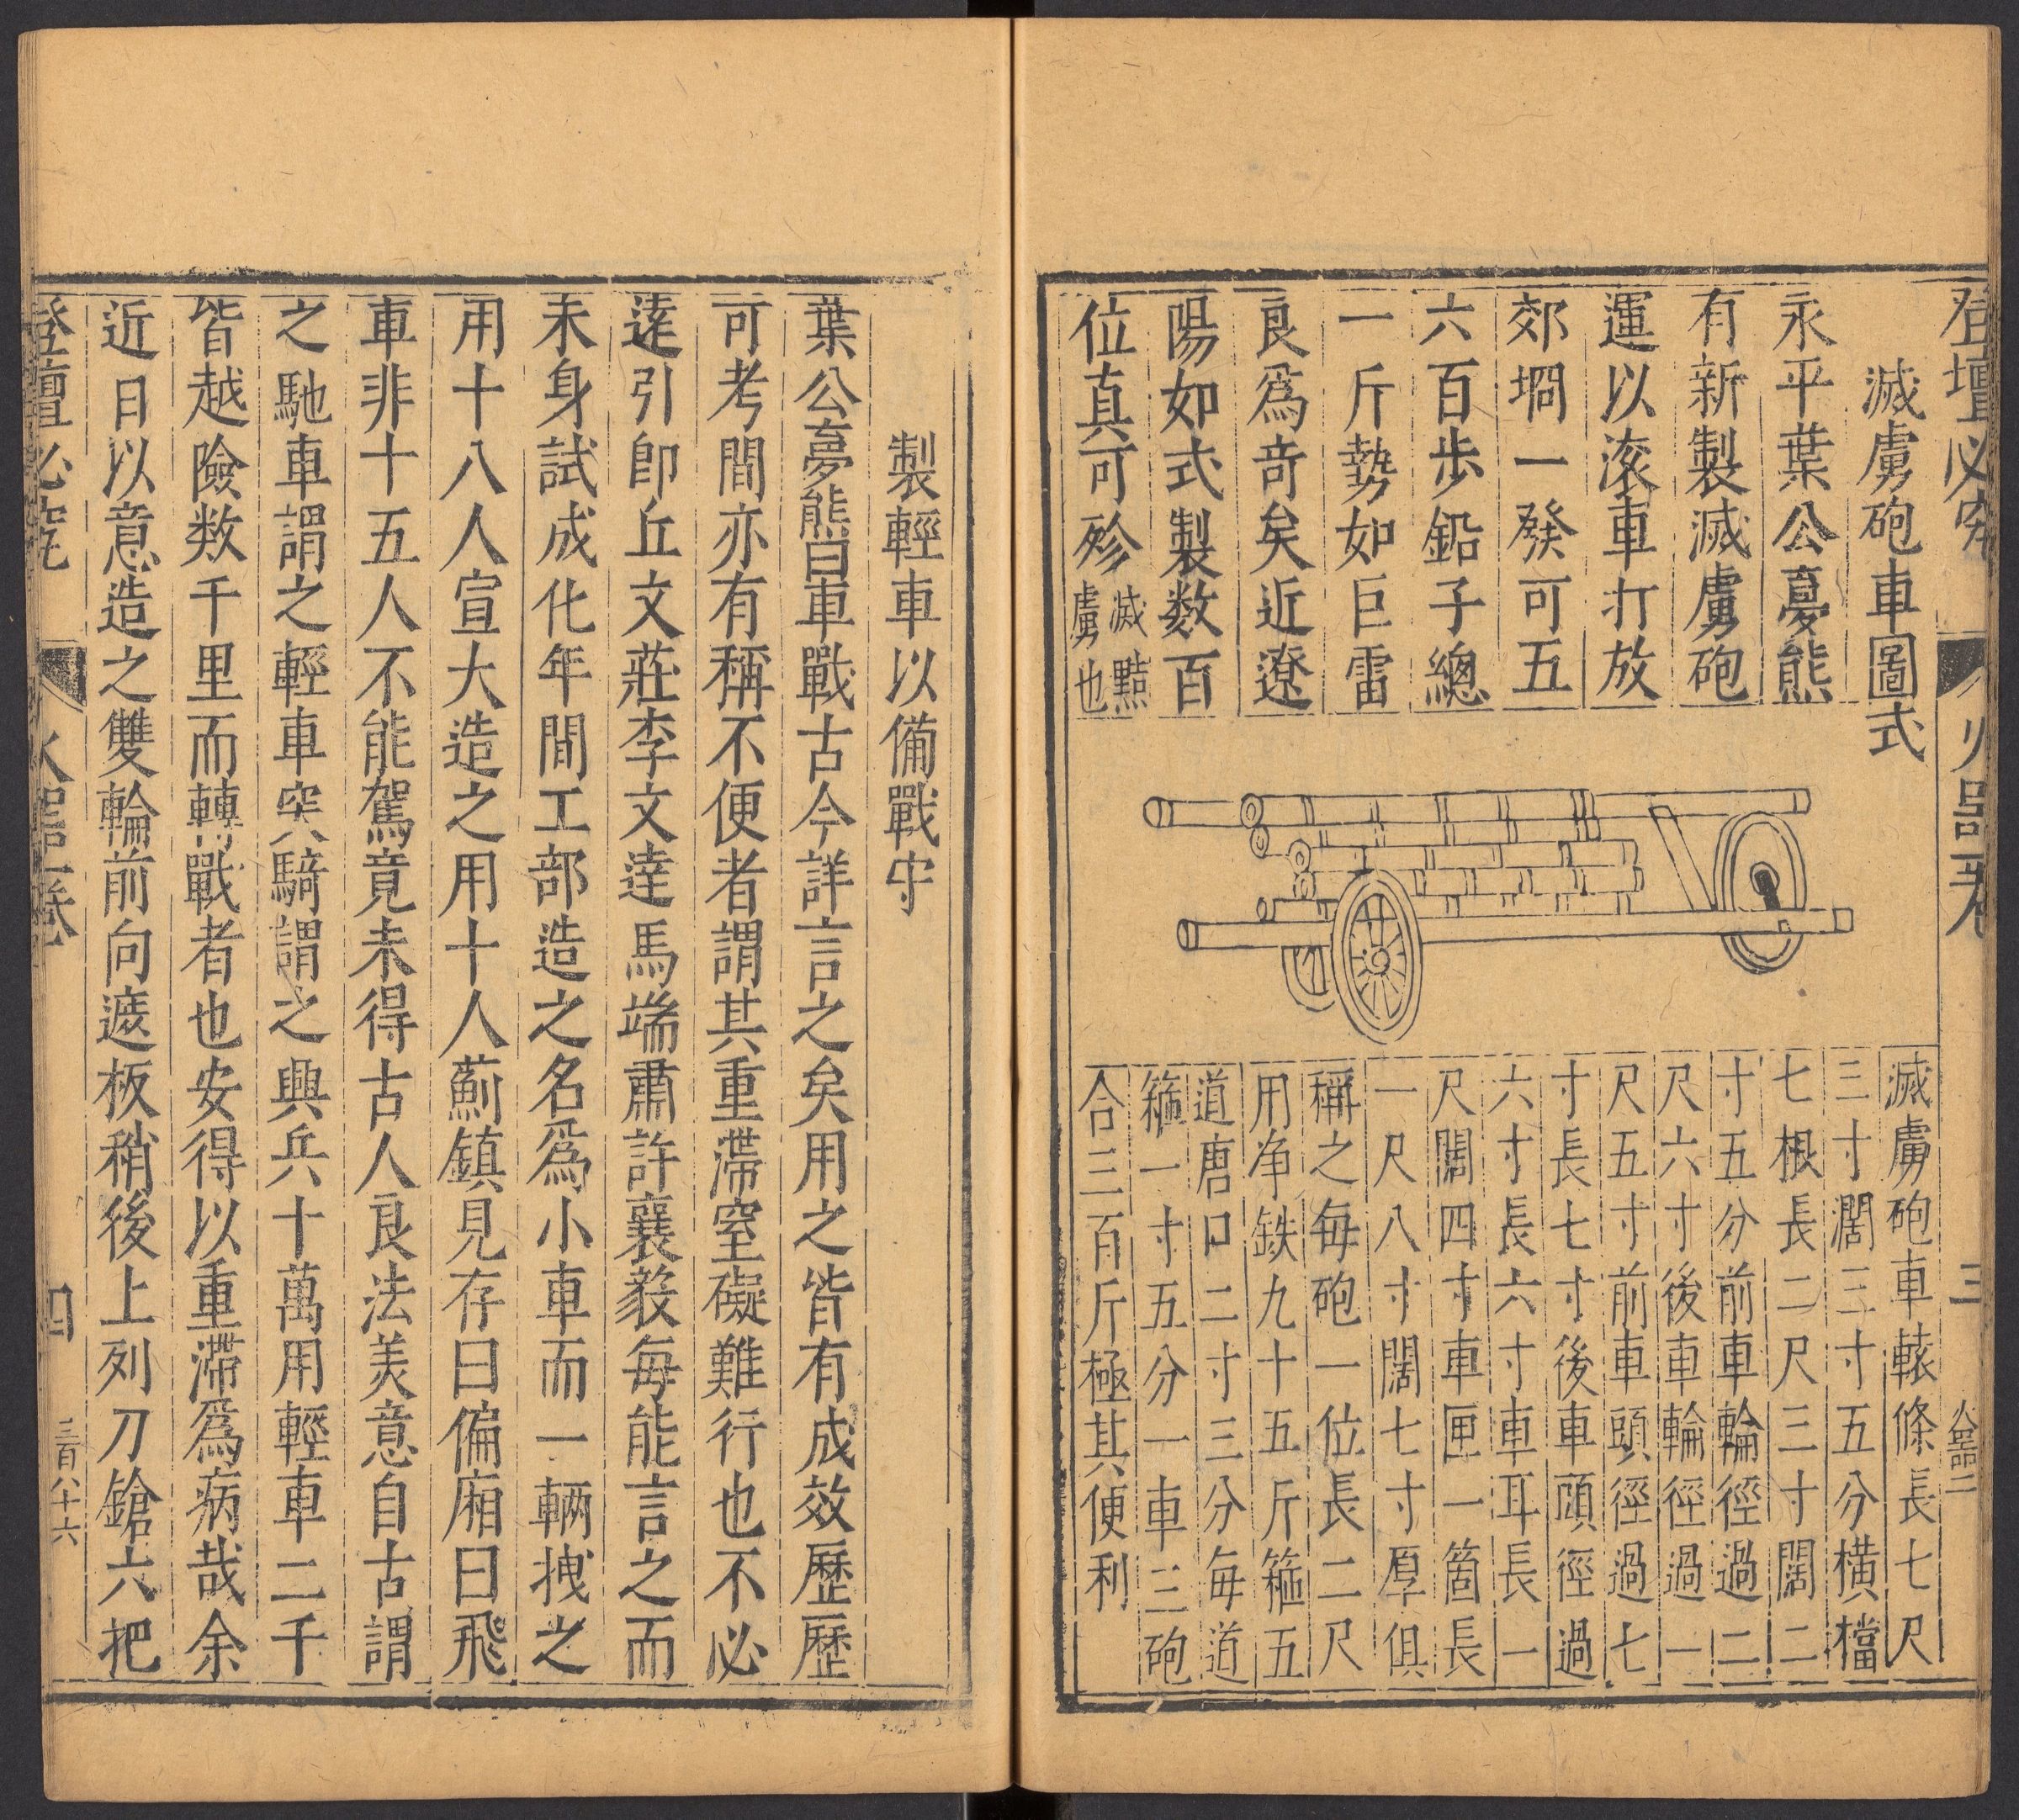 登壇必究
火器卷
三
火器二
滅虜砲車圖式
永平葉公夢熊
有新製滅虜砲
運以滚車打放
郊坰一發可五
六百步鉛子總
一斤勢如巨雷
良爲奇矣近遼
陽如式製数百
位真可殄滅黠虜也
滅虜砲車轅條長七尺
三寸濶三寸五分橫檔
七根長二尺三寸闊二
寸五分前車輪徑過二
尺六寸後車輪徑過一
尺五寸前車頭徑過七
寸長七寸後車頭徑過
六寸長六寸車耳長一
尺闊四寸車匣一箇長
一尺八寸闊七寸厚俱
稱之每砲一位長二尺
用净鉄九十五斤箍五
道唐口二寸三分每道
箍一寸五分一車三砲
合三百斤極其便利
製輕車以備戰守
葉公夢熊曰車戰古今詳言之矣用之皆有成效歷歷
可考間亦有稱不便者謂其重滯窒礙難行也不必
逺引卽丘文莊李文達馬端肅許襄毅每能言之而
未身試成化年間工部造之名爲小車而一輛拽之
用十八人宣大造之用十人薊鎮見存曰偏廂曰飛
車非十五人不能駕竟未得古人良法美意自古謂
之馳車謂之輕車突騎謂之興兵十萬用輕車二千
皆越險数千里而轉戰者也安得以重滯爲病哉余
近日以意造之雙輪前向遮板稍後上列刀鎗六把
登壇必究
火器卷
四
三百八十六